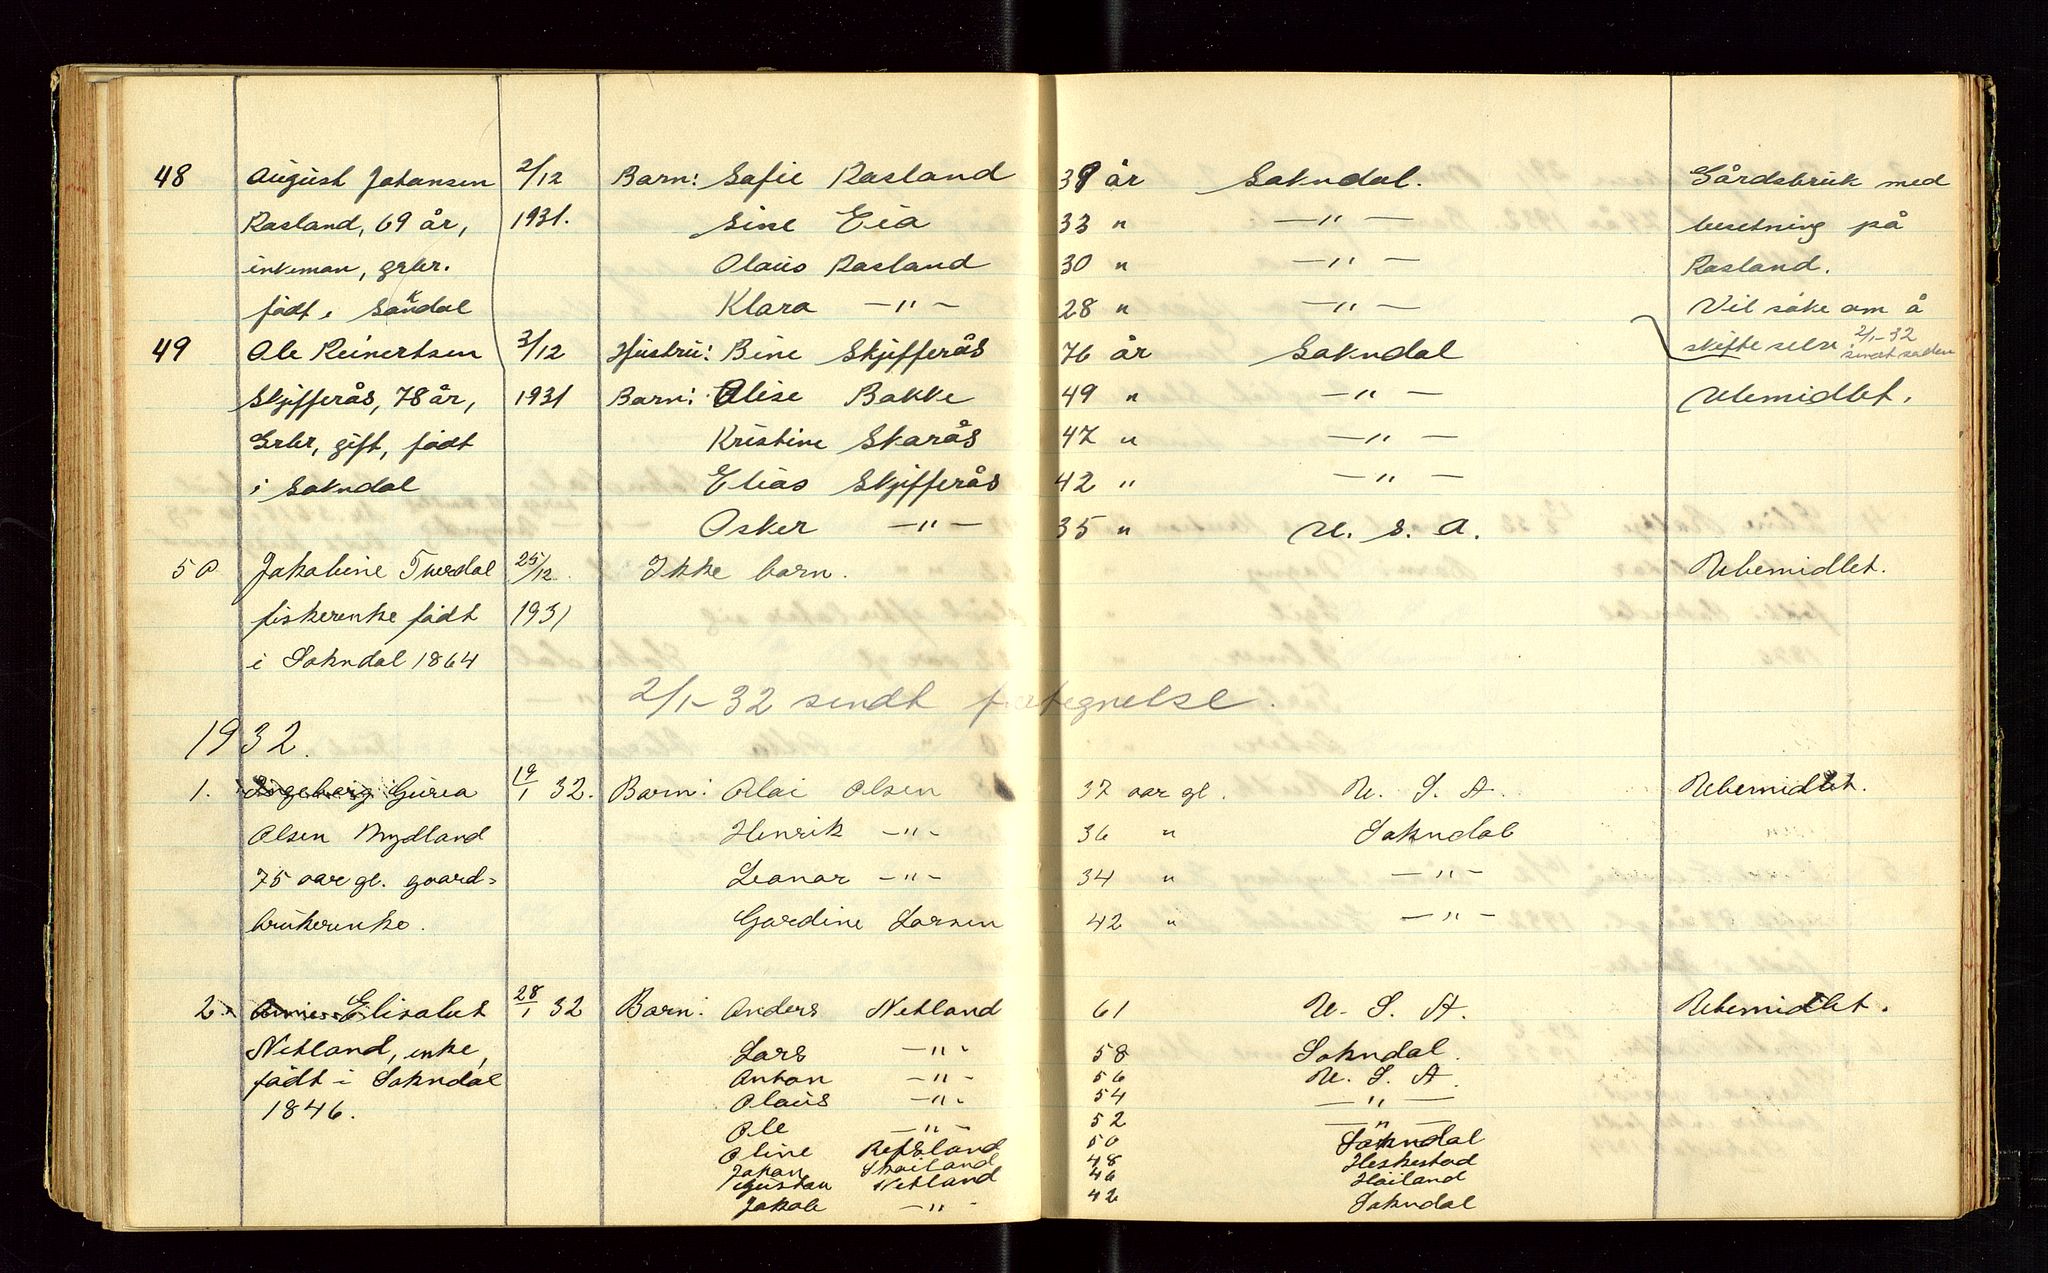 48 August Johansen 2/12 Barn: Sofie Rasland 38 år Sokndal. Gårdsbruk med
Rasland, 69 år, 1931. Sine Eia 33 " —"— besetning på
enkeman, grbr. Olaus Rasland 30 " —"— Rasland.
født i Sokndal Klara —"— 28 " —"— Vil søke om å
49 Ole Reinertsen 3/12 Hustru: Bine Skjifferås 76 år Sokndal skifte selv. 2/1-32
Skjifferås, 78 år, 1931 Barn: Elise Bakke 49 " —"— Ubemidlet.
Grbr, gift, født Kristine Skarås 47 " —"—
i Sokndal Elias Skjifferås 42 " —"—
Osker —"— 35 " U. S. A.
50 Jakobine Tverdal 25/12. Ikke barn. Ubemidlet.
fiskerenke født 1931
i Sokndal 1864
2/1-32 sendt fortegnelse.
1932.
1. Ingeborg Gurea 19/1 32. Barn: Olai Olsen 37 aar gl. U. S. A. Ubemidlet.
Olsen Mydland Henrik —"— 36 " Sokndal
75 aar gl. gaard- Leonar —"— 34 " —"—
brukerenke. Gardine Larsen 42 " —"—
2. Elisabet 28/1 32 Barn: Anders Netland 61 U. S. A. Ubemidlet.
Netland, enke, Lars —"— 58 Sokndal.
født i Sokndal Anton —"— 56 U. S. A.
1846. Olaus —"— 54 —"—
Ole —"— 52 —"—
Oline Refsland 50 Sokndal
Johan Skailand 48 Heskestad
Gustav Netland 46 Høiland
Jakob —"— 42 Sokndal